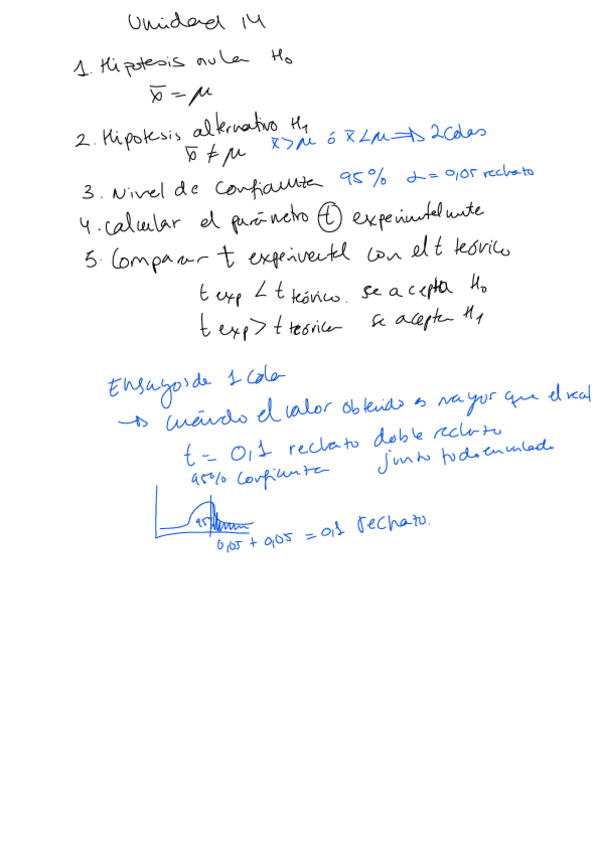 Unidad 14
1. Hipotesis nula H₀
x̄ = μ
2. Hipotesis alternativo H₁
x̄ ≠ μ x̄ > μ ó x̄ < μ ⇒ 2 Colas
3. Nivel de confianza 95% α = 0,05 rechazo
4. calcular el parámetro t experimentalmente
5. Comparar t experimental con el t teórico
t exp < t teórico. se acepta H₀
t exp > t teórica se acepta H₁
Ensayos de 1 Cola
→ cuándo el valor obtenido es mayor que el real
t = 0,1 rechazo doble rechazo
95% Confianza junto todo en un lado
95
0,05 + 0,05 = 0,1 rechazo.